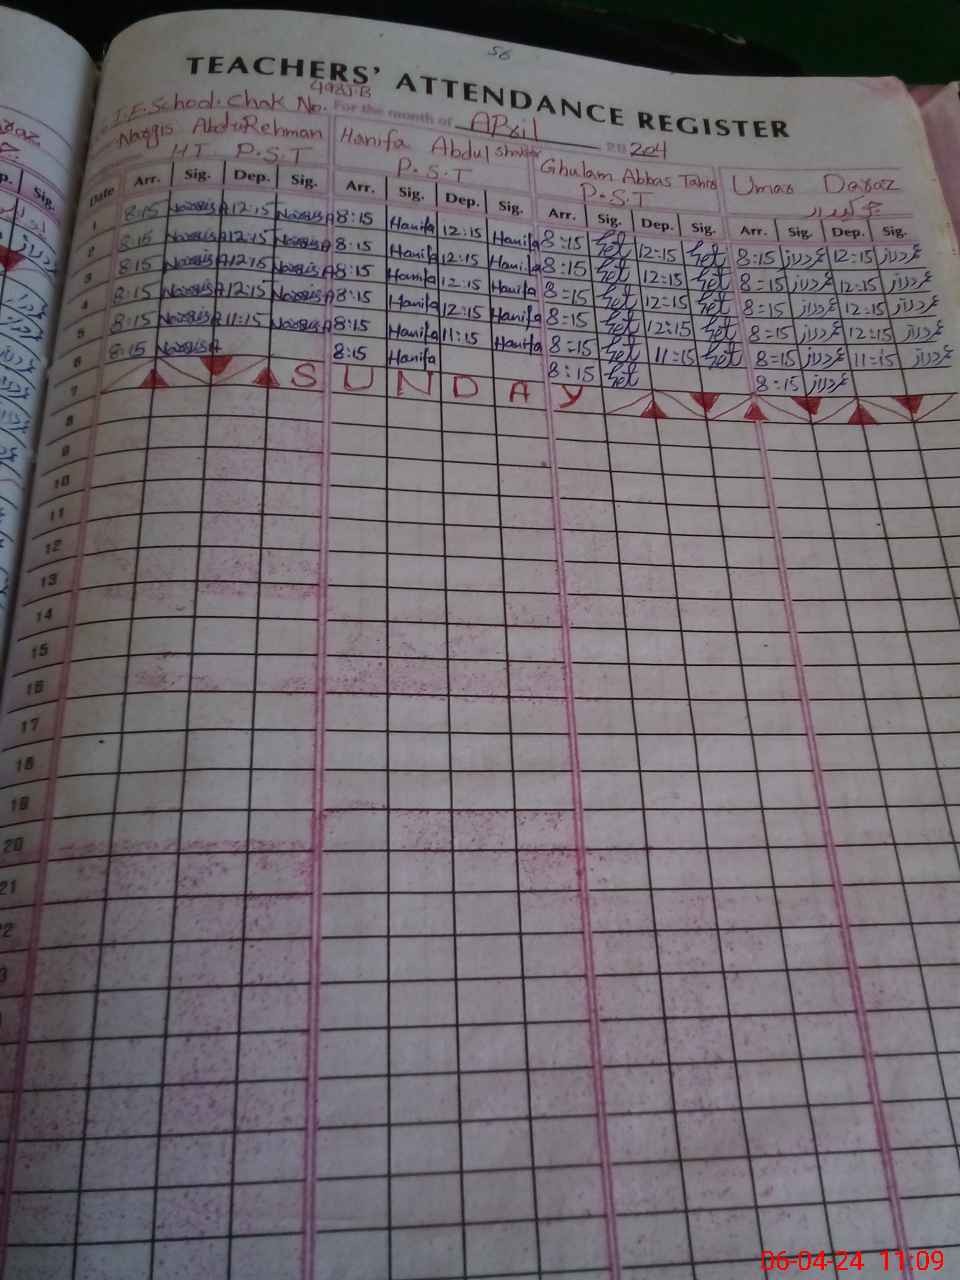 56
TEACHERS' ATTENDANCE REGISTER
498J.B
I.E. School. Chak No. For the month of April 20 204
Nargis Abdu Rehman Hanifa Abdul Ghulam Abbas Tahir Umar Daraz
H T. P.S.T P.S.T P.S.T
Date Arr. Sig. Dep. Sig. Arr. Sig. Dep. Sig. Arr. Sig. Dep. Sig. Arr. Sig. Dep. Sig.
1 8:15 Nargis A 12:15 Nargis A 8:15 Hanifa 12:15 Hanifa 8:15 12:15 8:15 عمردراز 12:15 عمردراز
2 8:15 Nargis A 12:15 Nargis A 8:15 Hanifa 12:15 Hanifa 8:15 12:15 8:15 عمردراز 12:15 عمردراز
3 8:15 Nargis A 12:15 Nargis A 8:15 Hanifa 12:15 Hanifa 8:15 12:15 8:15 عمردراز 12:15 عمردراز
4 8:15 Nargis A 12:15 Nargis A 8:15 Hanifa 12:15 Hanifa 8:15 12:15 8:15 عمردراز 12:15 عمردراز
5 8:15 Nargis A 11:15 Nargis A 8:15 Hanifa 11:15 Hanifa 8:15 11:15 8:15 عمردراز 11:15 عمردراز
6 8:15 Nargis A 8:15 Hanifa 8:15 8:15 عمردراز
7 SUNDAY
8
9
10
11
12
13
14
15
16
17
18
19
20
21
06-04-24 11:09